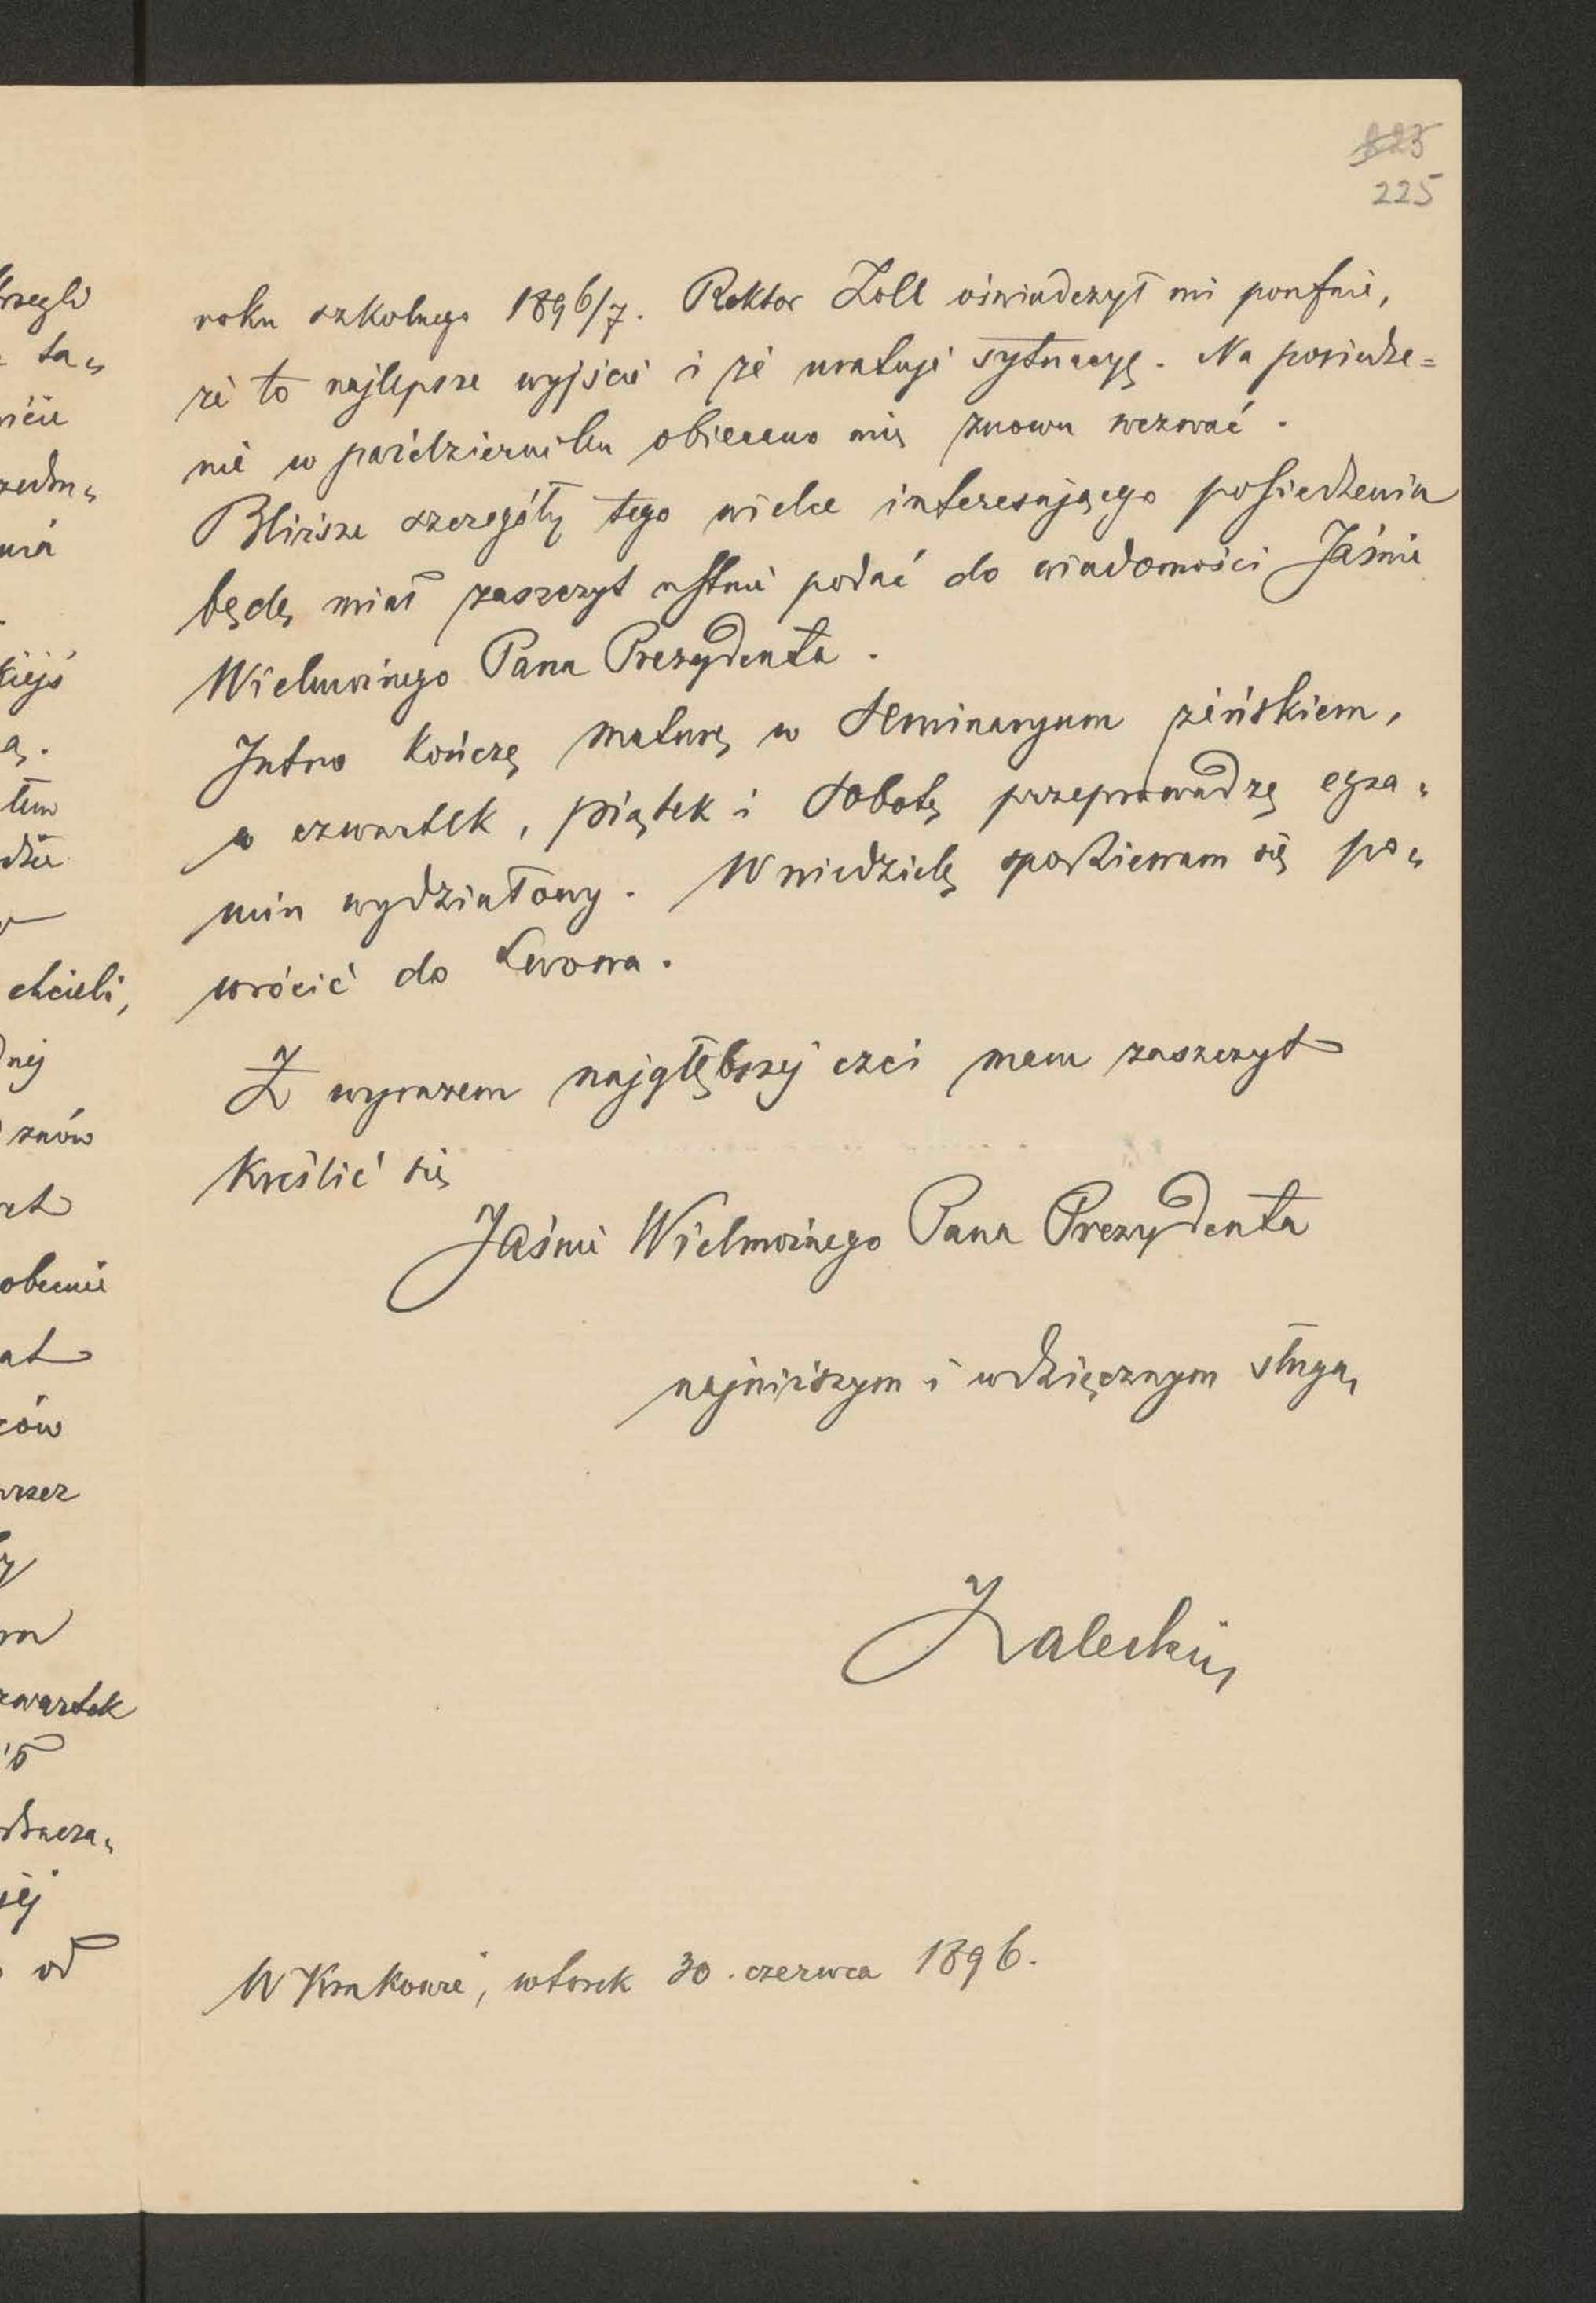 225
roku szkolnego 1896/7. Rektor Zoll oświadczył mi poufnie,
że to najlepsze wyjście i że uratuje sytuacyę. Na posiedze=
nie w październiku obiecano mię znowu wezwać.
Bliższe szczegóły tego wielce interesującego posiedzenia
będę miał zaszczyt ustnie podać do wiadomości Jaśnie
Wielmożnego Pana Prezydenta.
Jutro kończę maturę w seminaryum żeńskiem,
w czwartek, piątek i sobotę przeprowadzę egza„
min wydziałowy. W niedzielę spodziewam się po„
wrócić do Lwowa.
Z wyrazem najgłębszej czci mam zaszczyt
kreślić się
Jaśnie Wielmożnego Pana Prezydenta
najniższym i wdzięcznym sługą
Zaleski
W Krakowie, wtorek 30. czerwca 1896.
ta„
chcieli,
znów
obecnie
od